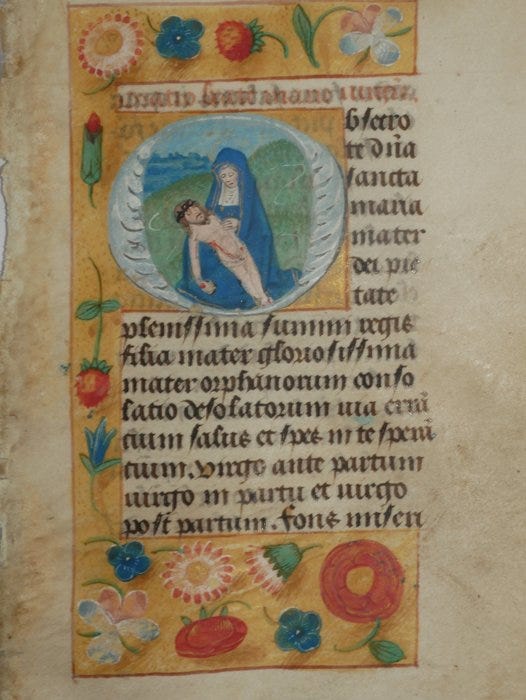 bsecro
te dn̄a
sancta
maria
mater
dei pie
tate
plenissima summi regis
filia mater gloriosissima
mater orphanorum conso
latio desolatorum uia errā
cium salus et spes in te sperā
cium. virgo ante partum
uirgo in partu et uirgo
post partum. fons miseri